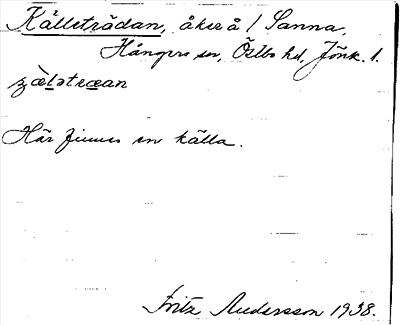 Källeträdan, åker å / Sanna,
Hångers sn, Östbo hd, Jönk. l.
Här finnes en källa.
Fritz Andersson 1938.